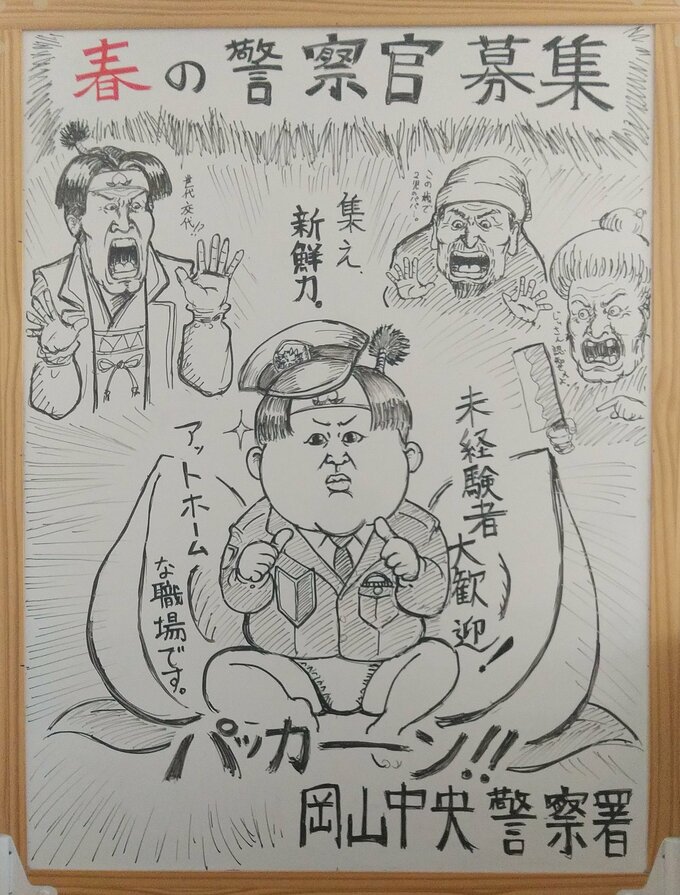 春の警察官募集
世代交代!?
集え、
新鮮力。
この桃で
2児のパパ。
じいさん説教だよ
未経験者
大歓迎!
アットホーム
な職場です。
パッカーン!!
岡山中央警察署